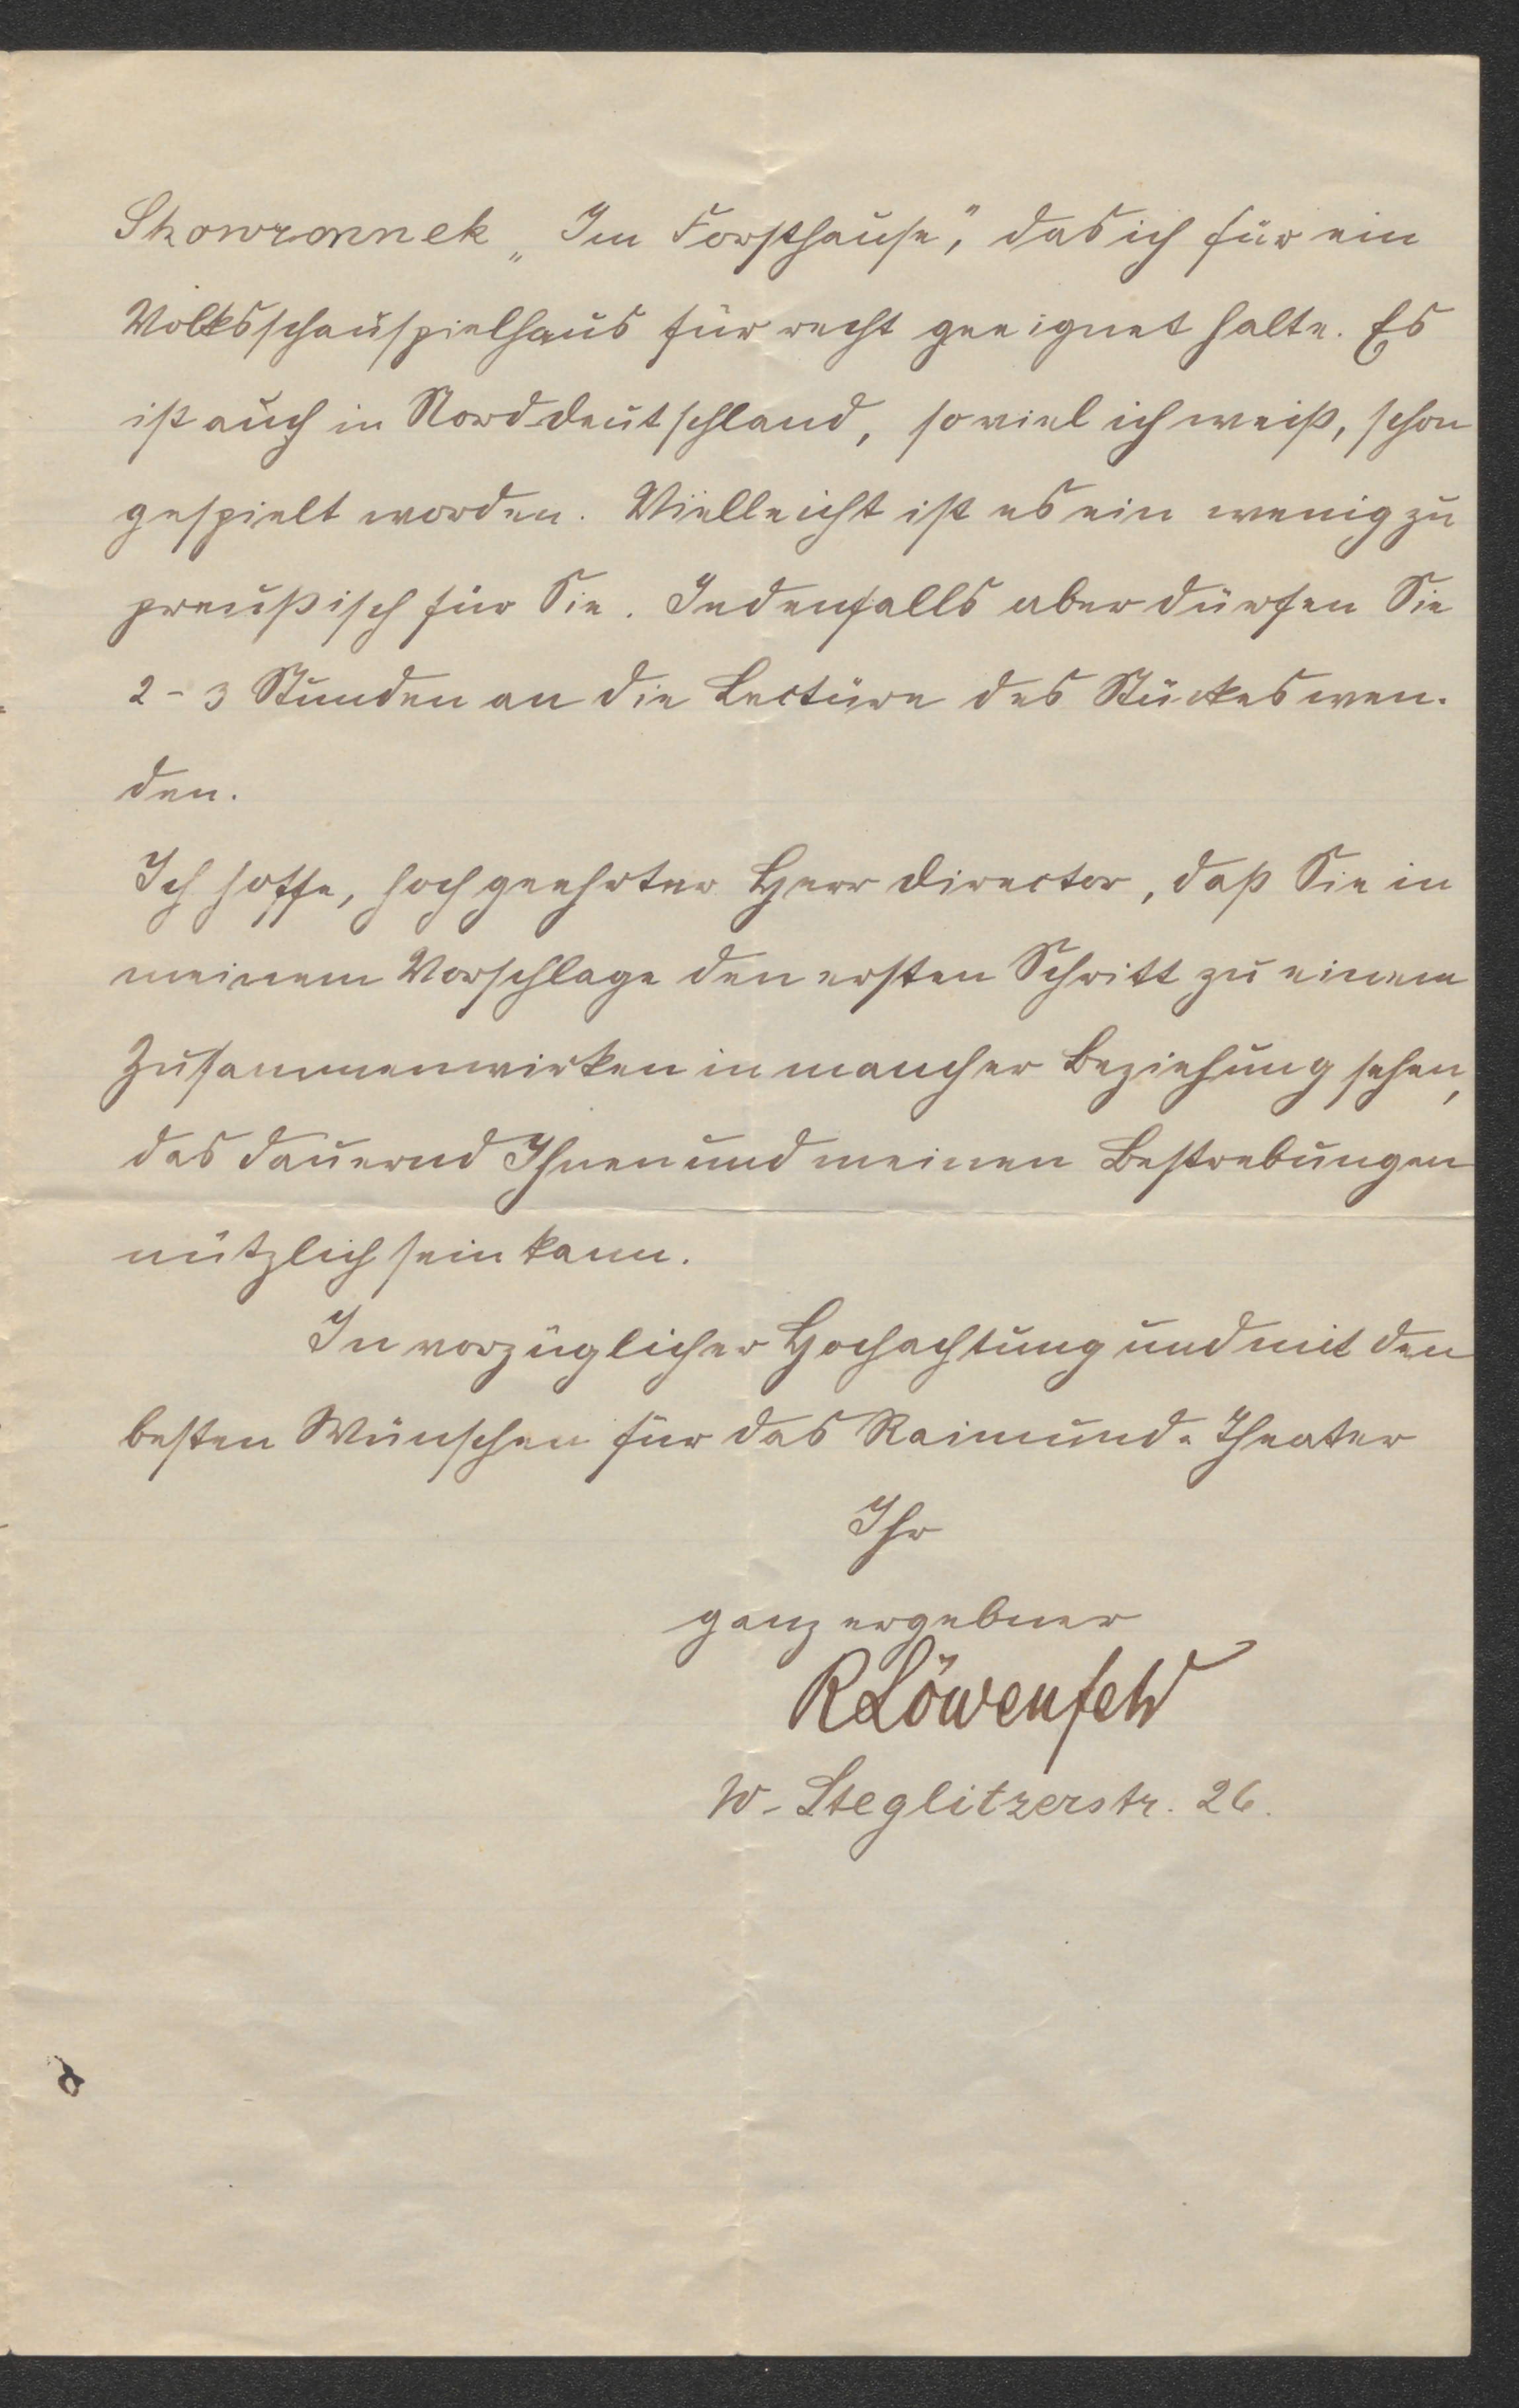 Skowronnek „Im Forsthause“, das ich für ein
Volksschauspielhaus für recht geeignet halte. Es
ist auch in Norddeutschland, soviel ich weiß, schon
gespielt worden. Vielleicht ist es ein wenig zu
preußisch für Sie. Jedenfalls aber dürfen Sie
2-3 Stunden an die Lectüre des Stückes wen-
den.
Ich hoffe, hochgeehrter Herr Director, daß Sie in
meinem Vorschlage den ersten Schritt zu einem
Zusammenwirken in mancher Beziehung sehen,
das dauernd Ihnen und meinen Bestrebungen
nützlich sein kann.
In vorzüglicher Hochachtung und mit den
besten Wünschen für das Raimund-Theater
Ihr
ganz ergebner
RLöwenfeld
W- Steglitzerstr. 26.